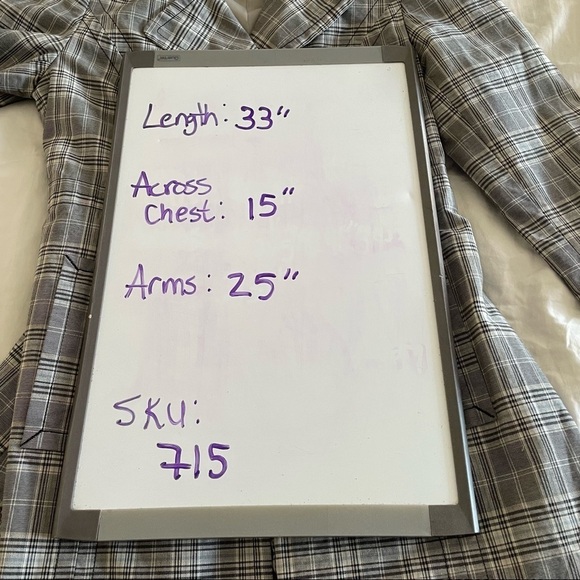 Length: 33"
Across
Chest: 15"
Arms: 25"
SKU:
715